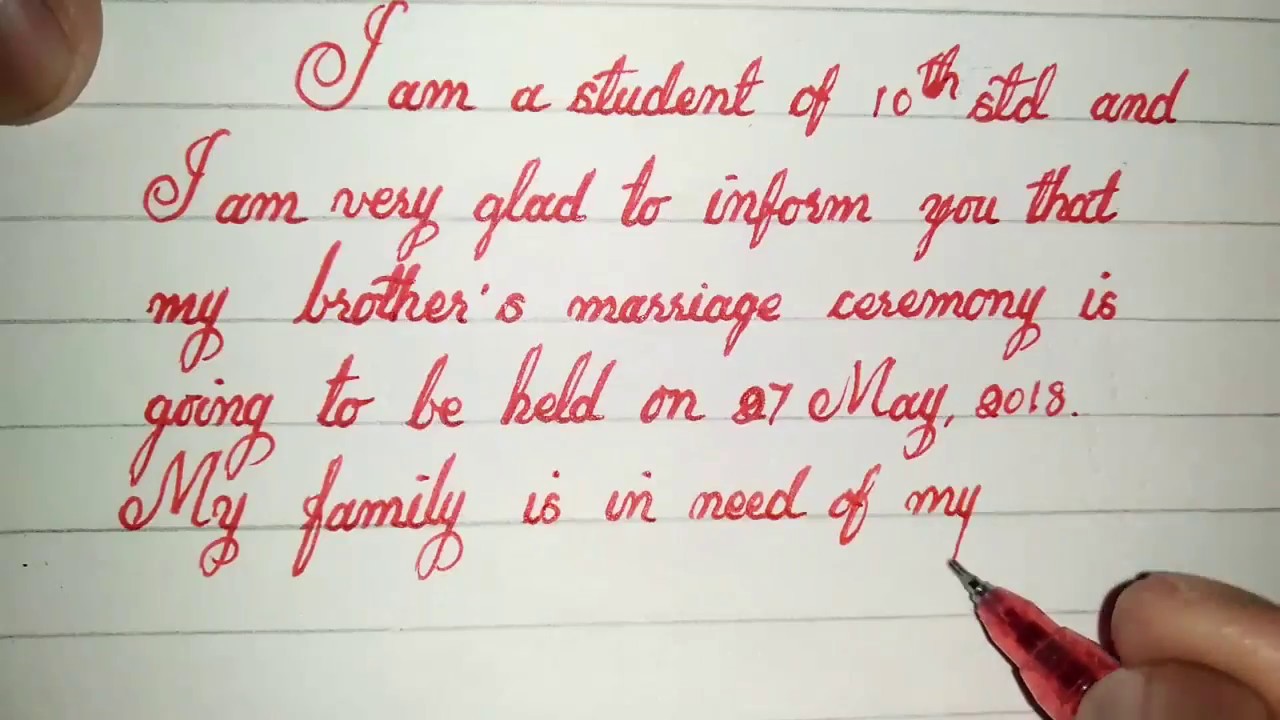 I am a student of 10th std and
I am very glad to inform you that
my brother's marriage ceremony is
going to be held on 27 May, 2018.
My family is in need of my